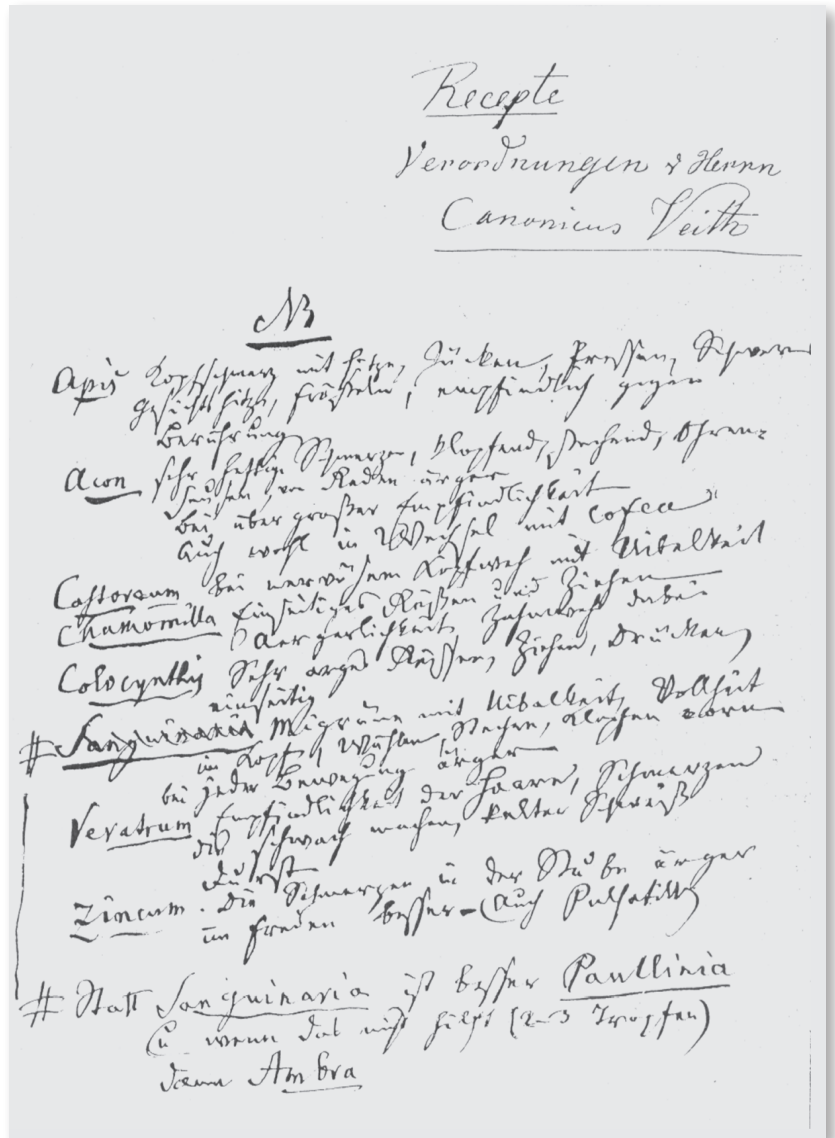 Recepte
Verordnungen v Herrn
Canonicus Veith
NB
Apis Kopfschmerz mit Hitze, Jücken, Pressen, Schwere
Gesichtshitze, Frösteln, empfindlich gegen
Berührung
Acon sehr heftige Schmerzen, klopfend, stechend, Ohren=
sausen, von Reden ärger
bei übergroßer Empfindlichkeit
auch wohl in Wechsel mit Cofea
Castoreum bei nervösem Kopfweh mit Uibelkeit
Chamomilla Einseitiges Reißen und Ziehen
Aergerlichkeit, Zahnweh dabei
Colocynthis Sehr arges Reißen, Ziehen, Drücken,
einseitig
# Sanguinaria Migräne mit Uibelkeit, Vollheit
im Kopf, Wühlen, Stechen, Klopfen vorn
bei jeder Bewegung ärger
Veratrum Empfindlichkeit der Haare, Schmerzen
die schwach machen, kalter Schweiß
Durst
Zincum. Die Schmerzen in der Stube ärger
im Freien besser – (auch Pulsatilla)
# Statt Sanguinaria ist besser Paullinia
(u wenn das nicht hilft (2–3 Tropfen)
dann Ambra